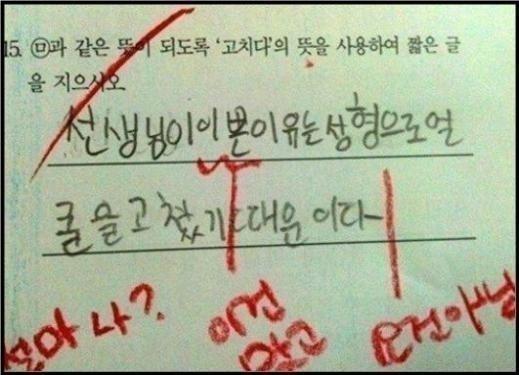 15. ㉤과 같은 뜻이 되도록 '고치다'의 뜻을 사용하여 짧은 글
을 지으시오
선생님이 이쁜 이유는 성형으로 얼
굴을 고쳤기 때문이다
설마 나?
이건
맞고
요건아님